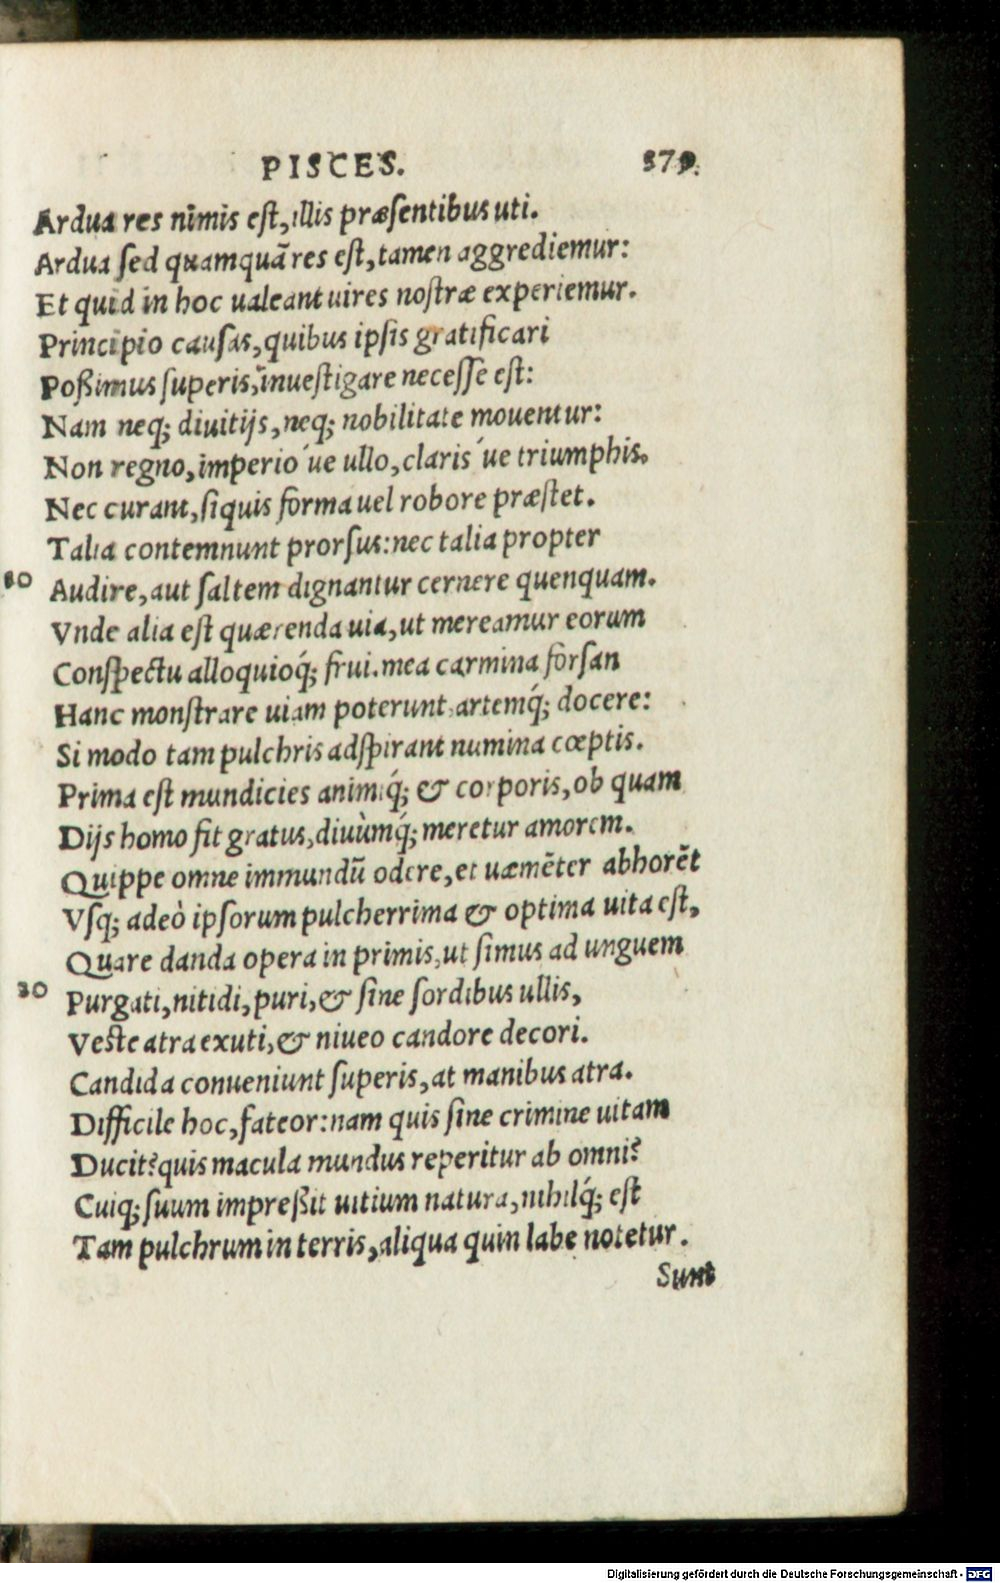 PISCES. 379.
Ardua res nimis est, illis præsentibus uti.
Ardua sed quamquā res est, tamen aggrediemur:
Et quid in hoc ualeant uires nostræ experiemur.
Principio causas, quibus ipsis gratificari
Poßimus superis, inuestigare necesse est:
Nam neq; diuitijs, neq; nobilitate mouentur:
Non regno, imperio ́ue ullo, claris ́ue triumphis.
Nec curant, siquis forma uel robore præstet.
Talia contemnunt prorsus: nec talia propter
80 Audire, aut saltem dignantur cernere quenquam.
Vnde alia est quærenda uia, ut mereamur eorum
Conspectu alloquioq́; frui. mea carmina forsan
Hanc monstrare uiam poterunt, artemq́; docere:
Si modo tam pulchris adspirant numina cœptis.
Prima est mundicies animiq́; & corporis, ob quam
Dijs homo fit gratus, diuùmq́; meretur amorem.
Quippe omne immundū odere, et uæmēter abhorēt
Vsq; adeò ipsorum pulcherrima & optima uita est,
Quare danda opera in primis, ut simus ad unguem
30 Purgati, nitidi, puri, & sine sordibus ullis,
Veste atra exuti, & niueo candore decori.
Candida conueniunt superis, at manibus atra.
Difficile hoc, fateor: nam quis sine crimine uitam
Ducit? quis macula mundus reperitur ab omni?
Cuiq; suum impreßit uitium natura, nihilq́; est
Tam pulchrum in terris, aliqua quin labe notetur.
Sunt
Digitalisierung gefördert durch die Deutsche Forschungsgemeinschaft - DFG